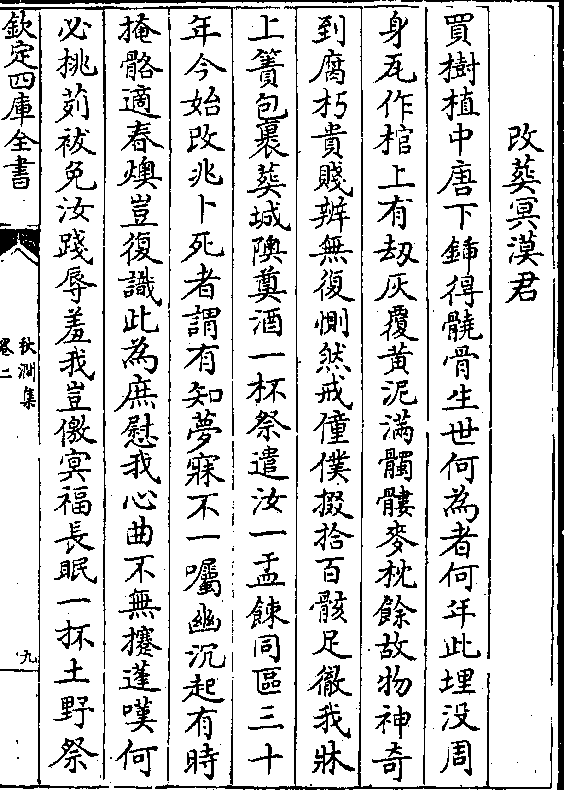 改葬冥漠君
買樹植中唐下鍤得髐骨生世何為者何年此埋没周
身瓦作棺上有刼灰覆黄泥満髑髏麥秕餘故物神奇
到腐朽貴賤辨無復惻然戒僮僕掇拾百骸足徹我牀
上簀包裹葬城隩奠酒一杯祭遣汝一盂餗同區三十
年今始改兆卜死者謂有知夢寐不一囑幽沉起有時
掩骼適春燠豈復識此為庶慰我心曲不無攓蓬嘆何
必挑茢祓免汝踐辱羞我豈儌冥福長眠一抔土野祭
欽定四庫全書
秋澗集
卷二
九